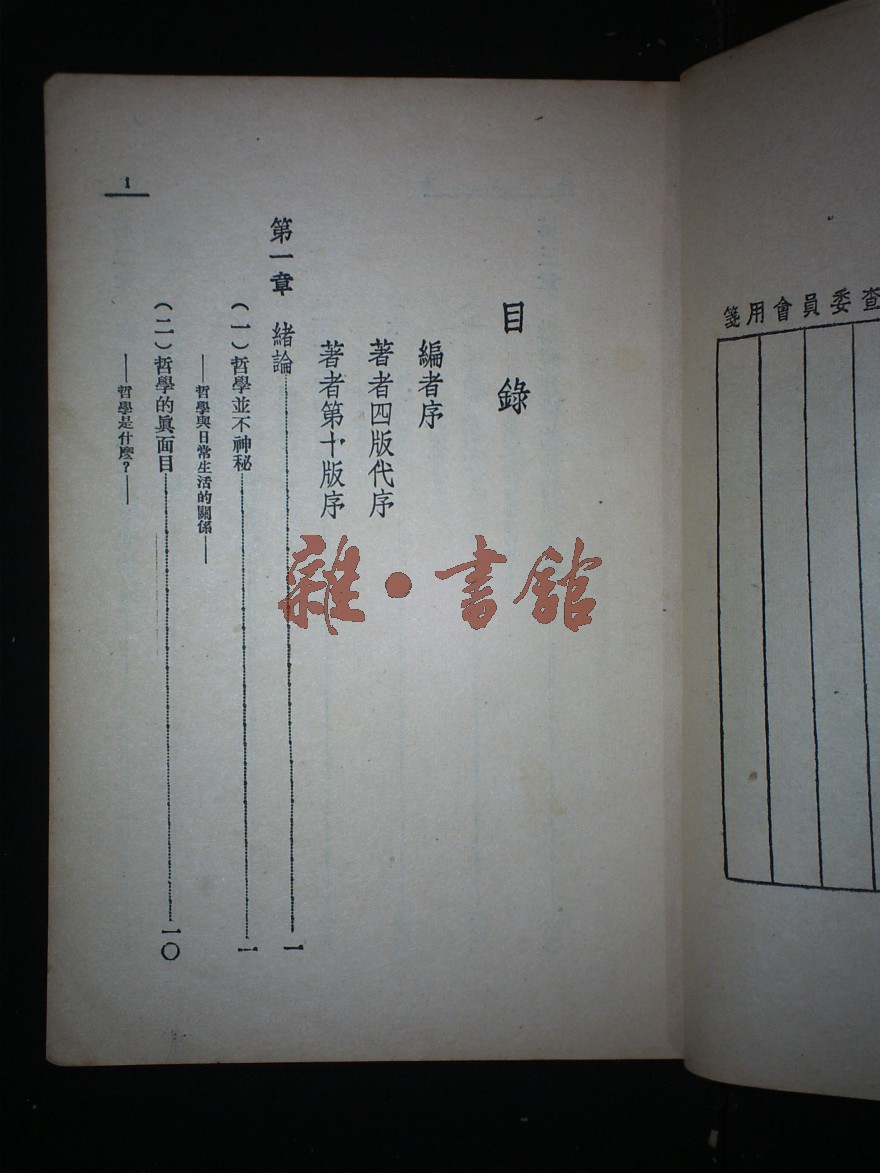 查委員會用箋
目錄
編者序
著者四版代序
著者第十版序
第一章 緒論……一
(一)哲學並不神秘……一
——哲學與日常生活的關係——
(二)哲學的眞面目……一〇
——哲學是什麼?——
1
雜·書館